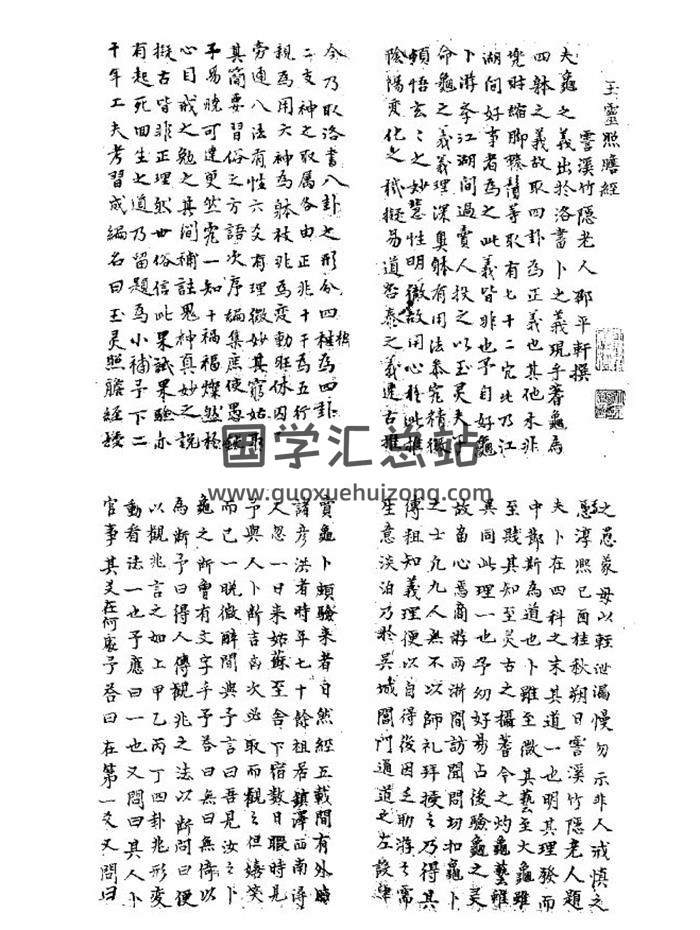 玉靈照膽經
霅溪竹隱老人邵平軒撰
夫龜之義出於洛書卜之義現乎蓍龜為
四躰之義故取四卦為正義也其他未非
時縮脚等取有七十二究此乃江
湖問好事者為之此義皆非也予自好龜
卜游學江湖間過賣人授之以玉灵夫子
命龜之義義理深奧躰有用法參究精微
頓悟玄之之妙慧性明徹故用心於此推
陰陽变化之機擬易道否泰之義違古推
今乃取洛書八卦之形分四柱為四卦
二支神之取属各由正兆十干為五行
親為用六神為躰柱兆為变動旺休囚
旁通八法有性六爻有理微妙其窮姑取
其簡要習俗之方語次序編集庶使愚
予易曉可達更然一知十禍福燦然於
心目戒之勉之其間補註鬼神真妙之説
擬古皆非正理然世俗信此果試果驗亦
有起死回生之道乃留題為小補予下二
十年工夫考習成編名曰玉灵照膽經授
之愚蒙毋以輕泄漏慢勿示非人戒慎之
淳熙己酉桂秋朔日霅溪竹隱老人題
夫卜在四科之末其道一也明其理發而
中鄙斯為道也卜雖至微其藝至大龜雖
至賤其知至灵古之蓍今之灼龜藝雖
異同此理一也予幼好易占後驗龜之灵
故畱心焉商游兩浙間訪聞問切扣龜卜
之士凢九人無不以師礼拜授之乃得其
傳祖知義理便以自得後因乏助游之需
生意淡泊乃於吳城閶門通道之左設肆
賣龜卜頓驗来者自然經五載間有外
諸彦洪者時年七十餘祖居鎮澤西南潯
人忽一日来姑蘇至舍下宿数日暇時見
予與人卜断吉凶次必取而觀之但嬉笑
而已一晚微醉間與予言曰吾見汝之卜
龜之断曾有文字乎予荅曰無曰無倚以
為断予曰得人傳觀兆之法以断問曰便
以觀兆言之如上甲乙丙丁四卦兆形変
動看法一也予應曰一也又問曰其人卜
官事其爻在何處予荅曰在第一爻又問曰
国学汇总站
www.guoxuehuizong.com